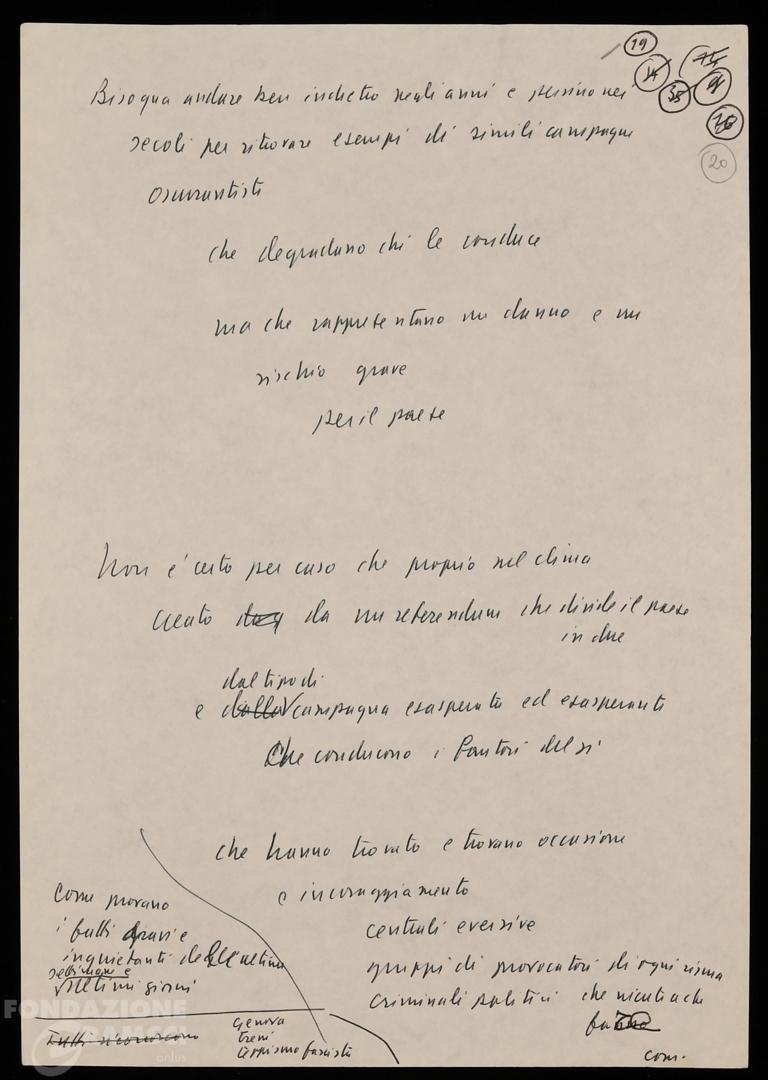 19
14
75
35
9
18
20
Bisogna andare ben indietro negli anni e persino nei
secoli per ritrovare esempi di simili campagne
oscurantiste
che degradano chi le conduce
ma che rappresentano un danno e un
rischio grave
per il paese
Non è certo per caso che proprio nel clima
creato da un referendum che divide il paese
in due
dal tipo di
e dalla campagna esasperata ed esasperante
che conducono i fautori del si
che hanno trovato e trovano occasione
e incoraggiamento
centrali eversive
gruppi di provocatori di ogni risma
criminali politici che
com.
Come provano
i fatti gravi e
inquietanti dell'ultima
settimana e
ultimi giorni
Tutti si conoscono
Genova
treni
teppismo fascista
FONDAZIONE
GRAMSCI
onlus